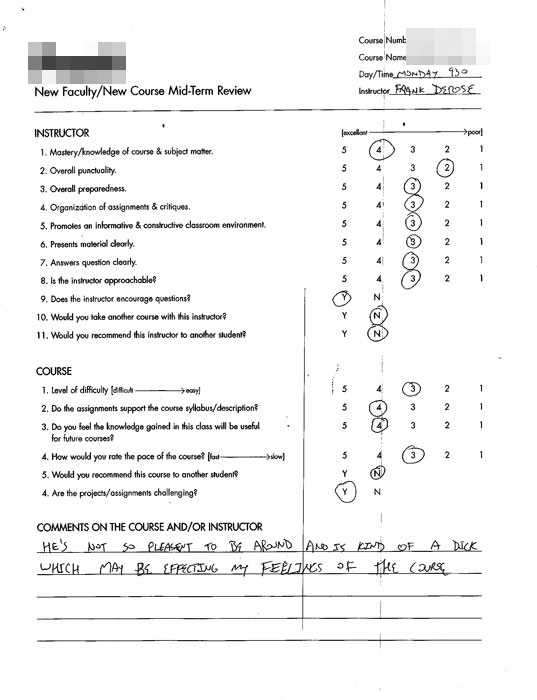 Course Numb
Course Name
Day/Time MONDAY 930
New Faculty/New Course Mid-Term Review
Instructor FRANK DEROSE
INSTRUCTOR
[excellent poor]
1. Mastery/knowledge of course & subject matter. 5 4 3 2 1
2. Overall punctuality. 5 4 3 2 1
3. Overall preparedness. 5 4 3 2 1
4. Organization of assignments & critiques. 5 4 3 2 1
5. Promotes an informative & constructive classroom environment. 5 4 3 2 1
6. Presents material clearly. 5 4 3 2 1
7. Answers question clearly. 5 4 3 2 1
8. Is the instructor approachable? 5 4 3 2 1
9. Does the instructor encourage questions? Y N
10. Would you take another course with this instructor? Y N
11. Would you recommend this instructor to another student? Y N
COURSE
1. Level of difficulty [difficult easy] 5 4 3 2 1
2. Do the assignments support the course syllabus/description? 5 4 3 2 1
3. Do you feel the knowledge gained in this class will be useful 5 4 3 2 1
for future courses?
4. How would you rate the pace of the course? [fast slow] 5 4 3 2 1
5. Would you recommend this course to another student? Y N
4. Are the projects/assignments challenging? Y N
COMMENTS ON THE COURSE AND/OR INSTRUCTOR
HE'S NOT SO PLEASENT TO BE AROUND AND IS KIND OF A DICK
WHICH MAY BE EFFECTING MY FEELINGS OF THE COURSE